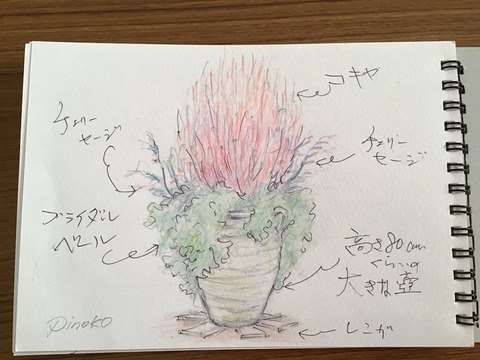 コキヤ
チェリー
セージ
チェリー
セージ
ブライダル
ベール
高さ80cm
くらいの
大きな壺
レンガ
Pinoko